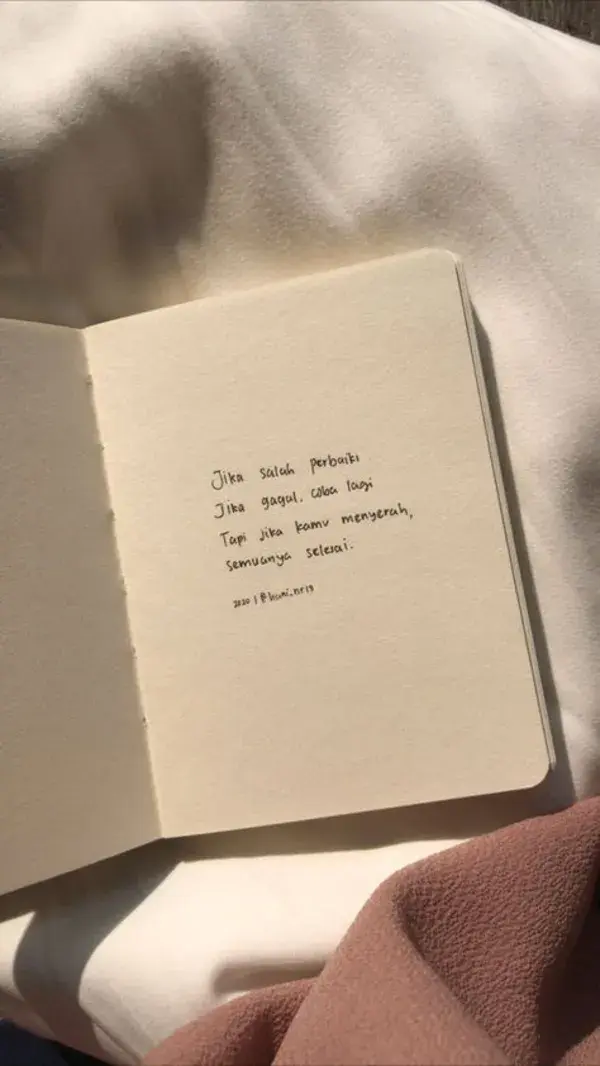 Jika salah perbaiki
Jika gagal, coba lagi
Tapi jika kamu menyerah,
semuanya selesai.
2020 |